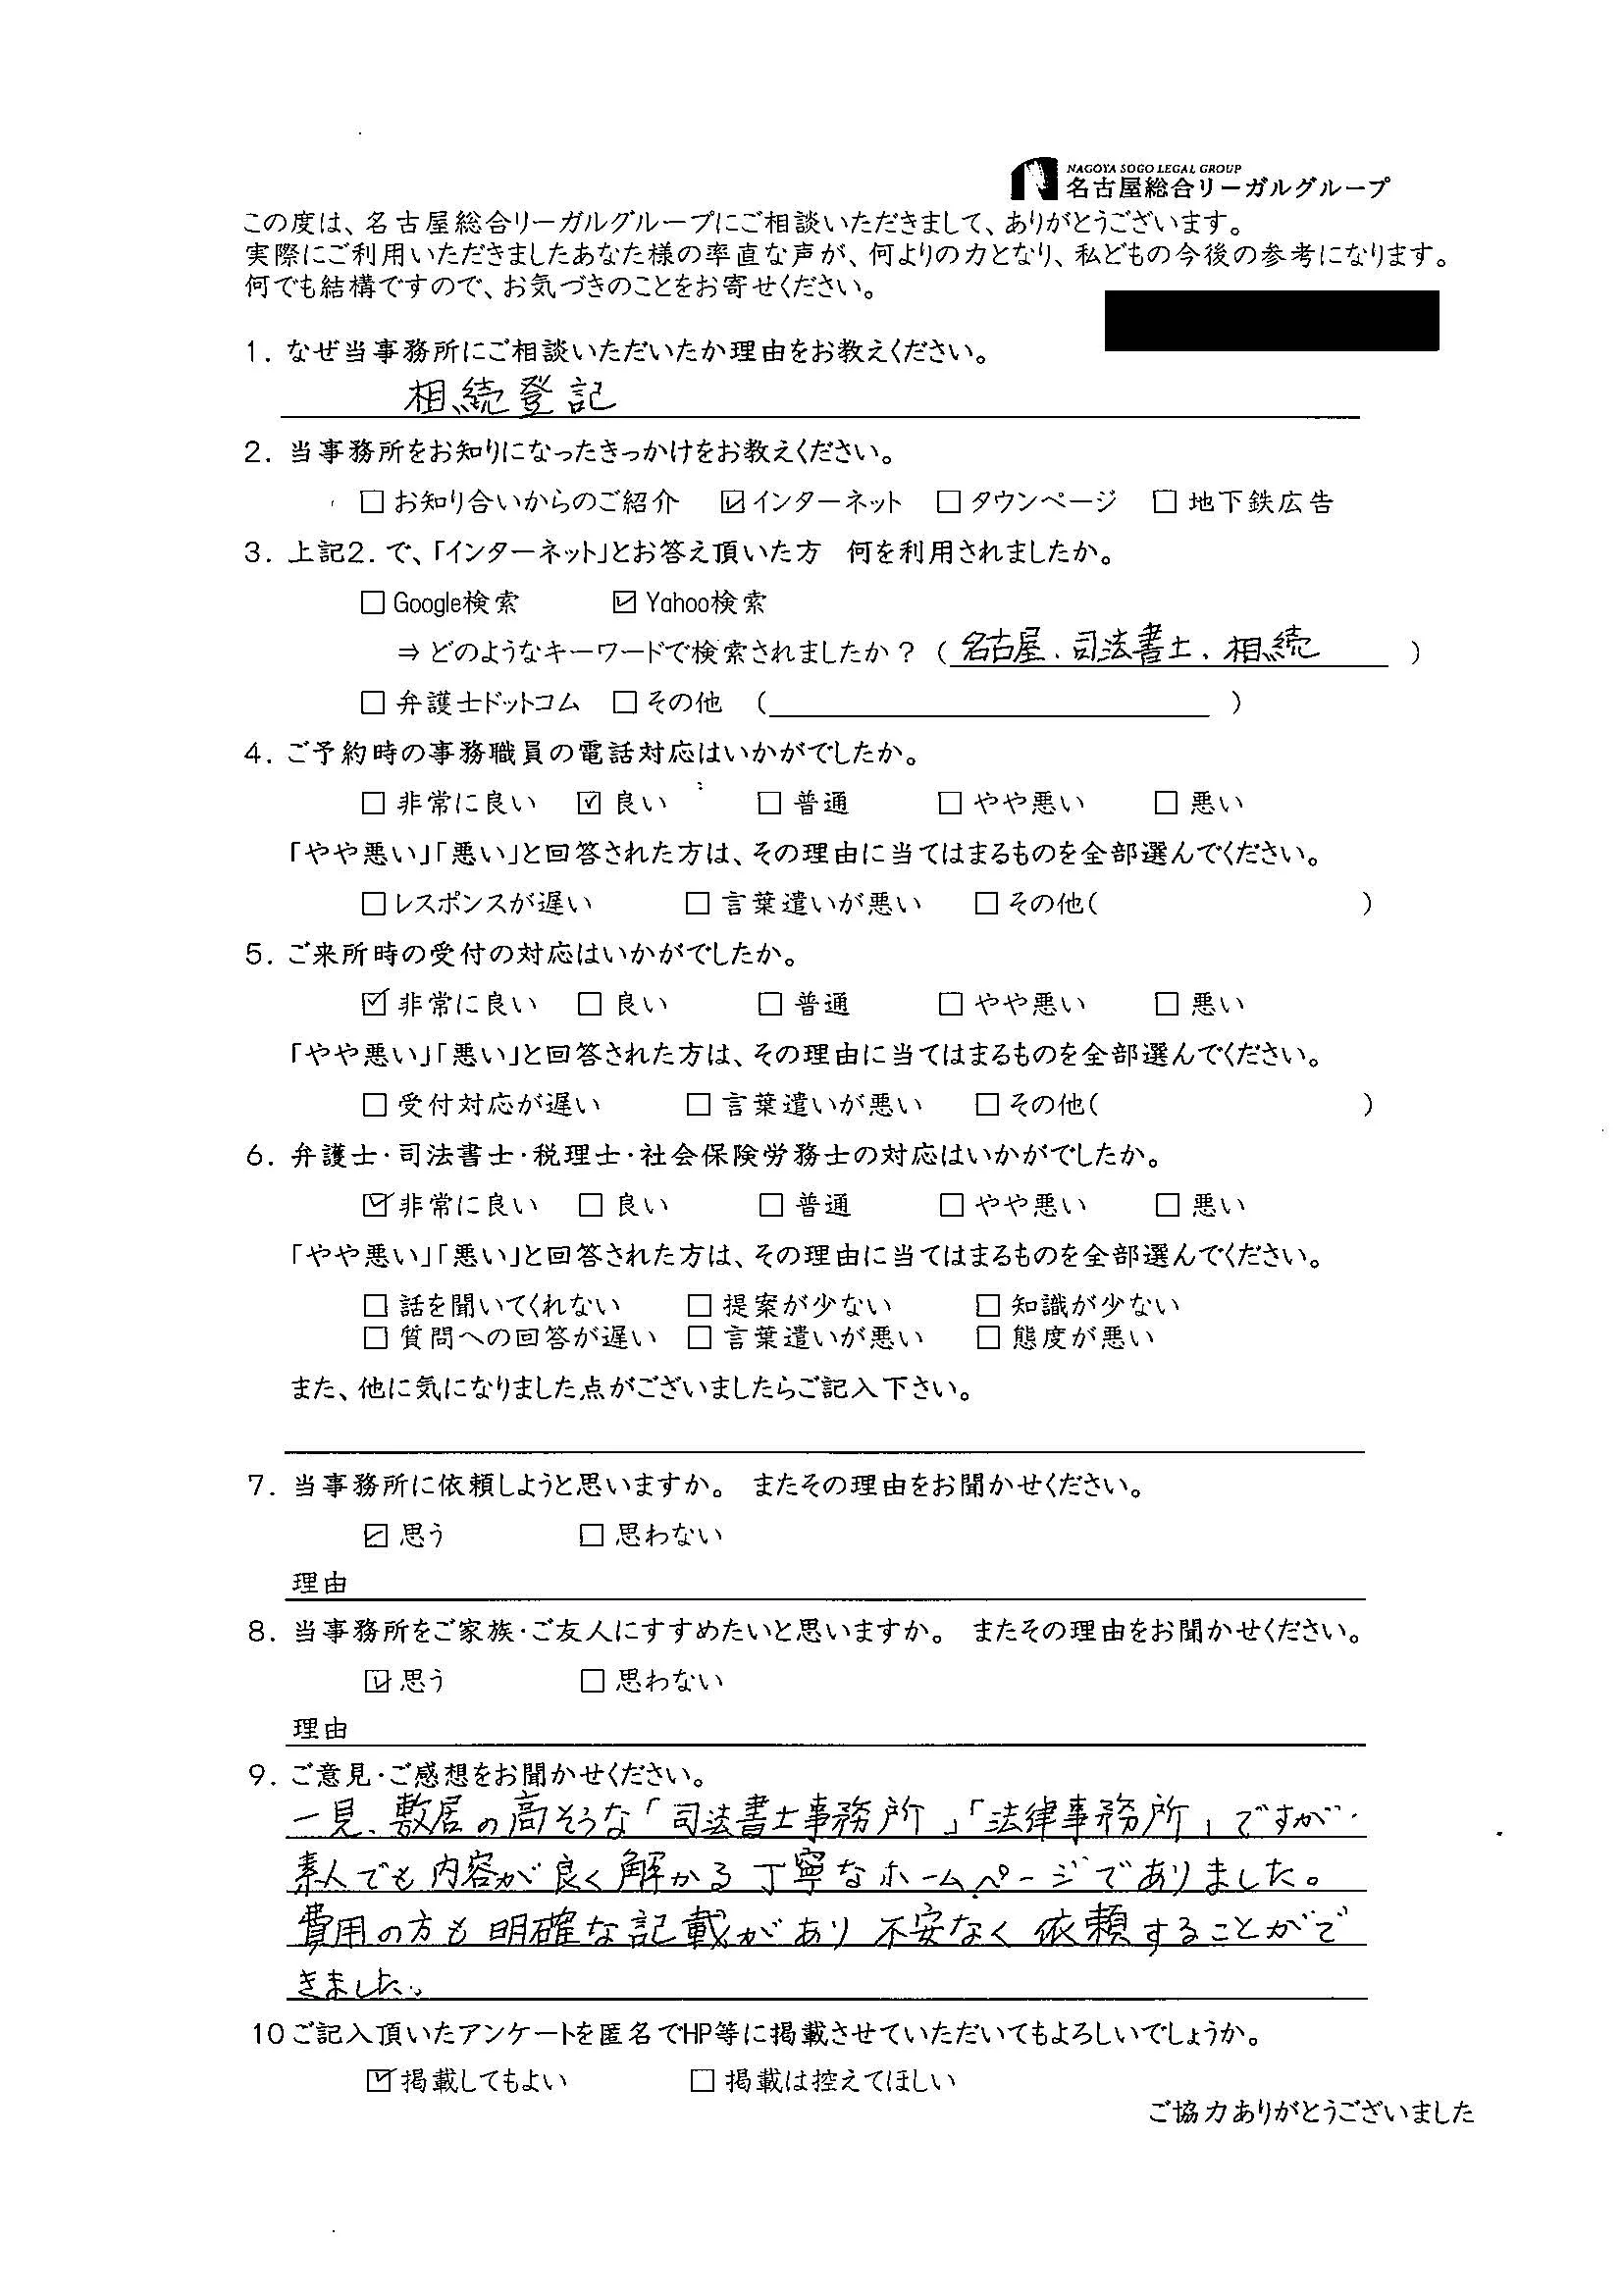 NAGOYA SOGO LEGAL GROUP
名古屋総合リーガルグループ
この度は、名古屋総合リーガルグループにご相談いただきまして、ありがとうございます。
実際にご利用いただきましたあなた様の率直な声が、何よりの力となり、私どもの今後の参考になります。
何でも結構ですので、お気づきのことをお寄せください。
1. なぜ当事務所にご相談いただいたか理由をお教えください。
相続登記
2. 当事務所をお知りになったきっかけをお教えください。
□ お知り合いからのご紹介 ☑ インターネット □ タウンページ □ 地下鉄広告
3. 上記2.で、「インターネット」とお答え頂いた方 何を利用されましたか。
□ Google検索 ☑ Yahoo検索
⇒ どのようなキーワードで検索されましたか？ ( 名古屋、司法書士、相続 )
□ 弁護士ドットコム □ その他 ( )
4. ご予約時の事務職員の電話対応はいかがでしたか。
□ 非常に良い ☑ 良い □ 普通 □ やや悪い □ 悪い
「やや悪い」「悪い」と回答された方は、その理由に当てはまるものを全部選んでください。
□ レスポンスが遅い □ 言葉遣いが悪い □ その他( )
5. ご来所時の受付の対応はいかがでしたか。
☑ 非常に良い □ 良い □ 普通 □ やや悪い □ 悪い
「やや悪い」「悪い」と回答された方は、その理由に当てはまるものを全部選んでください。
□ 受付対応が遅い □ 言葉遣いが悪い □ その他( )
6. 弁護士・司法書士・税理士・社会保険労務士の対応はいかがでしたか。
☑ 非常に良い □ 良い □ 普通 □ やや悪い □ 悪い
「やや悪い」「悪い」と回答された方は、その理由に当てはまるものを全部選んでください。
□ 話を聞いてくれない □ 提案が少ない □ 知識が少ない
□ 質問への回答が遅い □ 言葉遣いが悪い □ 態度が悪い
また、他に気になりました点がございましたらご記入下さい。
7. 当事務所に依頼しようと思いますか。 またその理由をお聞かせください。
☑ 思う □ 思わない
理由
8. 当事務所をご家族・ご友人にすすめたいと思いますか。 またその理由をお聞かせください。
☑ 思う □ 思わない
理由
9. ご意見・ご感想をお聞かせください。
一見、敷居の高そうな「司法書士事務所」「法律事務所」ですが、
素人でも内容が良く解かる丁寧なホームページでありました。
費用の方も明確な記載があり不安なく依頼することがで
きました。
10 ご記入頂いたアンケートを匿名でHP等に掲載させていただいてもよろしいでしょうか。
☑ 掲載してもよい □ 掲載は控えてほしい
ご協力ありがとうございました